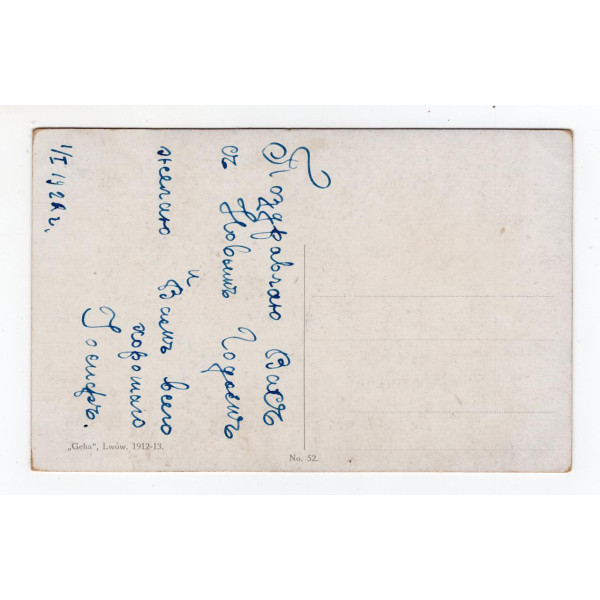 Поздравляю Васъ
съ Новымъ Годомъ
и
желаю Вамъ всего
хорошаго
Іосифъ.
1/I 192 г.
„Geha", Lwów. 1912-13.
No. 52.